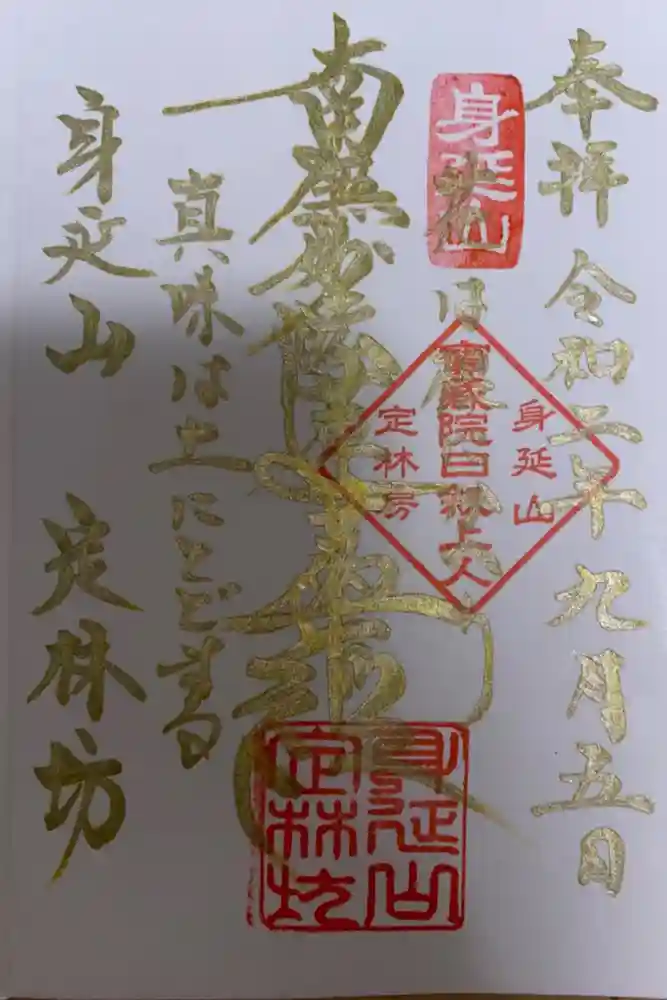 奉拝 令和二年九月五日
身延山
身延山
寶蔵院日叙上人
定林房
南無妙法蓮華経
眞味は土にとどまる
身延山 定林坊
身延山
定林坊